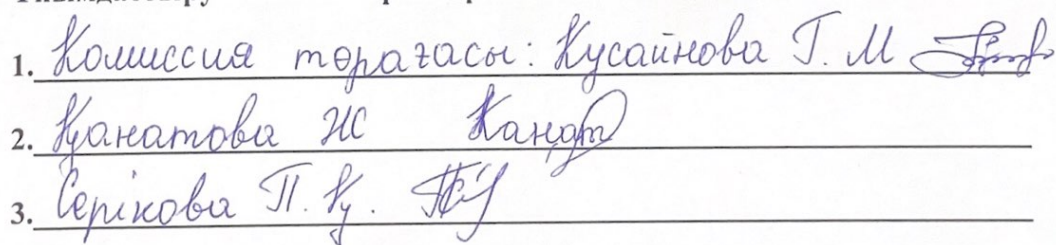 1. Комиссия төрағасы: Кусаинова Г. М
2. Қанатова Ж
3. Серікова П. Қ.